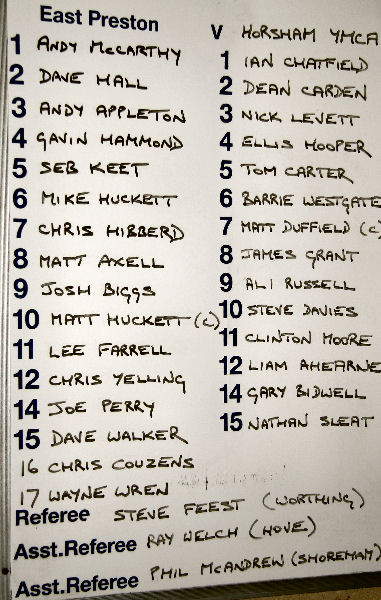 East Preston V HORSHAM YMCA
1 ANDY McCARTHY
2 DAVE HALL
3 ANDY APPLETON
4 GAVIN HAMMOND
5 SEB KEET
6 MIKE HUCKETT
7 CHRIS HIBBERD
8 MATT AXELL
9 JOSH BIGGS
10 MATT HUCKETT (C)
11 LEE FARRELL
12 CHRIS YELLING
14 JOE PERRY
15 DAVE WALKER
16 CHRIS COUZENS
17 WAYNE WREN
1 IAN CHATFIELD
2 DEAN CARDEN
3 NICK LEVETT
4 ELLIS HOOPER
5 TOM CARTER
6 BARRIE WESTGATE
7 MATT DUFFIELD (C)
8 JAMES GRANT
9 ALI RUSSELL
10 STEVE DAVIES
11 CLINTON MOORE
12 LIAM AHEARNE
14 GARY BIDWELL
15 NATHAN SLEAT
Referee STEVE FEEST (WORTHING)
Asst.Referee RAY WELCH (HOVE)
Asst.Referee PHIL McANDREW (SHOREHAM)